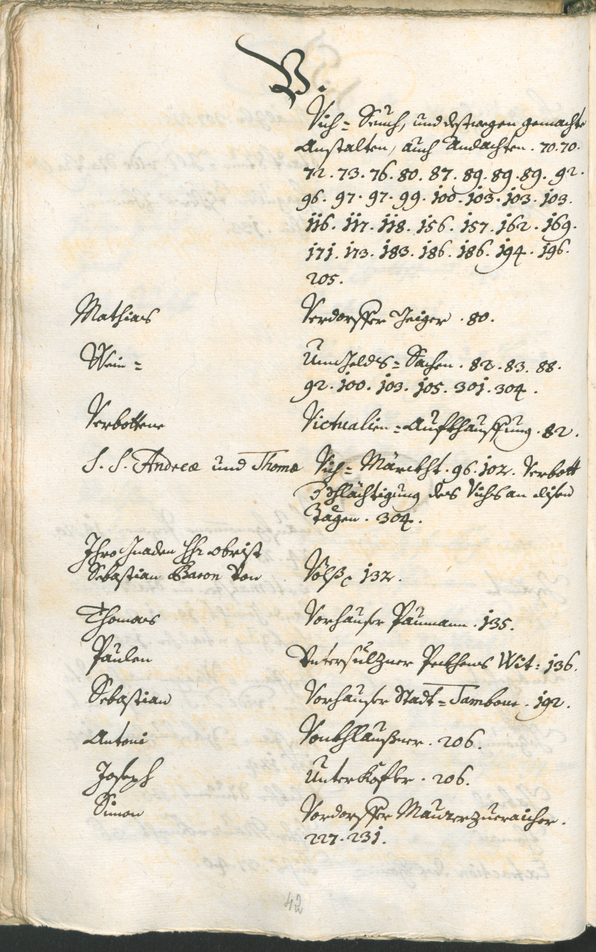 V.
Vich= Seuch, und destwegen gemachte
Anstalten, auch Andachten. 70. 70.
72. 73. 76. 80. 87. 89. 89. 89. 92.
96. 97. 97. 99. 100. 103. 103. 103.
116. 117. 118. 156. 157. 162. 169.
171. 173. 183. 186. 186. 194. 196.
205.
Mathias Verdorffer Zeiger. 80.
Wein= Umgelds= Sachen. 82. 83. 88.
92. 100. 103. 105. 301. 304.
Verbottene Victualien= Auffkhauffung. 82.
S. S. Andreæ und Thomæ Vich= Märckht. 96. 102. Verbott
Schlächtigung des Vichs an disen
Tägen. 304.
Ihro Gnaden Hr: Obrist
Sebastian Baron von Völß 132.
Thomas Vorhauser Paumann. 135.
Paulen Untersulzner Wit: 136.
Sebastian Vorhauser Stadt= Tambour. 192.
Antoni 206.
Joseph Unterkofler. 206.
Simon Verdorffer
227. 231.
42